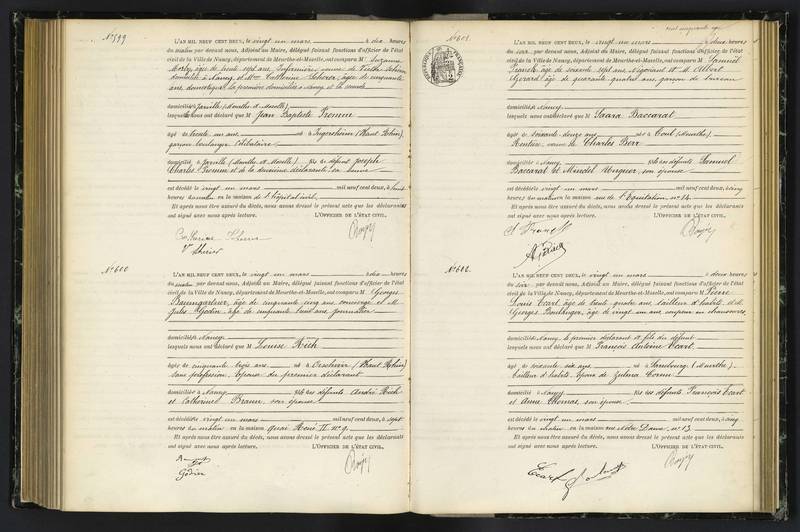 N° 599
L'AN MIL NEUF CENT DEUX, le vingt un mars à dix heures
du matin par devant nous, Adjoint au Maire, délégué faisant fonctions d'officier de l'état
civil de la Ville de Nancy, département de Meurthe-et-Moselle, ont comparu M Suzanne
âgée de trente sept ans,
domiciliée à Nancy et Catherine Scherer, âgée de cinquante
ans domestique la première domiciliée à Nancy et la seconde
domicilié à Jarville (Meurthe et Moselle)
lesquels nous ont déclaré que M Jean Baptiste Fromm
âgé de trente un ans né à Ingersheim (Haut Rhin)
garçon boulanger célibataire
domicilié à Jarville (Meurthe et Moselle) fils de défunt Joseph
Charles et de la deuxième déclarante sa veuve
est décédé le vingt un mars mil neuf cent deux, à
heures du matin en la maison de l'hôpital civil
Et après nous être assuré du décès, nous avons dressé le présent acte que les déclarants
ont signé avec nous après lecture. L'OFFICIER DE L'ÉTAT CIVIL,
Catherine
Vve
N° 600
L'AN MIL NEUF CENT DEUX, le vingt un mars à dix heures
du matin par devant nous, Adjoint au Maire, délégué faisant fonctions d'officier de l'état
civil de la Ville de Nancy, département de Meurthe-et-Moselle, ont comparu M Georges
Baumgartner, âgé de cinquante cinq ans, concierge et M
Jules Godin âgé de cinquante huit ans journalier
domiciliés à Nancy
lesquels nous ont déclaré que M Louise Rich
âgée de cinquante trois ans née à (Haut Rhin)
sans profession, épouse du premier déclarant
domiciliée à Nancy fille des défunts André Rich
et Catherine Braun son épouse
est décédée le vingt un mars mil neuf cent deux, à sept
heures du matin en la maison quai René II n° 9
Et après nous être assuré du décès, nous avons dressé le présent acte que les déclarants
ont signé avec nous après lecture. L'OFFICIER DE L'ÉTAT CIVIL,
Godin
N° 601
L'AN MIL NEUF CENT DEUX, le vingt un mars à deux heures
du soir par devant nous, Adjoint au Maire, délégué faisant fonctions d'officier de l'état
civil de la Ville de Nancy, département de Meurthe-et-Moselle, ont comparu M Samuel
Franck âgé de soixante sept ans, négociant et M Albert
Gérard âgé de quarante quatre ans, garçon de bureau
domiciliés à Nancy
lesquels nous ont déclaré que M Saara Baccarat
âgée de soixante douze ans née à Toul (Meurthe)
Rentière veuve de Charles Berr
domiciliée à Nancy fille des défunts Samuel
Baccarat et Mindel son épouse
est décédée le vingt un mars mil neuf cent deux, à cinq
heures du matin en la maison rue de l'Equitation n° 14
Et après nous être assuré du décès, nous avons dressé le présent acte que les déclarants
ont signé avec nous après lecture. L'OFFICIER DE L'ÉTAT CIVIL,
S Franck
N° 602
L'AN MIL NEUF CENT DEUX, le vingt un mars à deux heures
du soir par devant nous, Adjoint au Maire, délégué faisant fonctions d'officier de l'état
civil de la Ville de Nancy, département de Meurthe-et-Moselle, ont comparu M Pierre
Louis Ecart, âgé de trente quatre ans, tailleur d'habits, et M
Georges Boulanger, âgé de vingt un ans, coupeur en chaussures
domiciliés à Nancy, le premier déclarant est fils du défunt
lesquels nous ont déclaré que M François Antoine Ecart
âgé de soixante six ans né à Sarrebourg (Meurthe)
Tailleur d'habits, époux de
domicilié à Nancy fils des défunts François Ecart
et Anne Thomas, son épouse
est décédé le vingt un mars mil neuf cent deux, à cinq
heures du matin en la maison rue Notre Dame, n° 13
Et après nous être assuré du décès, nous avons dressé le présent acte que les déclarants
ont signé avec nous après lecture. L'OFFICIER DE L'ÉTAT CIVIL,
Ecart